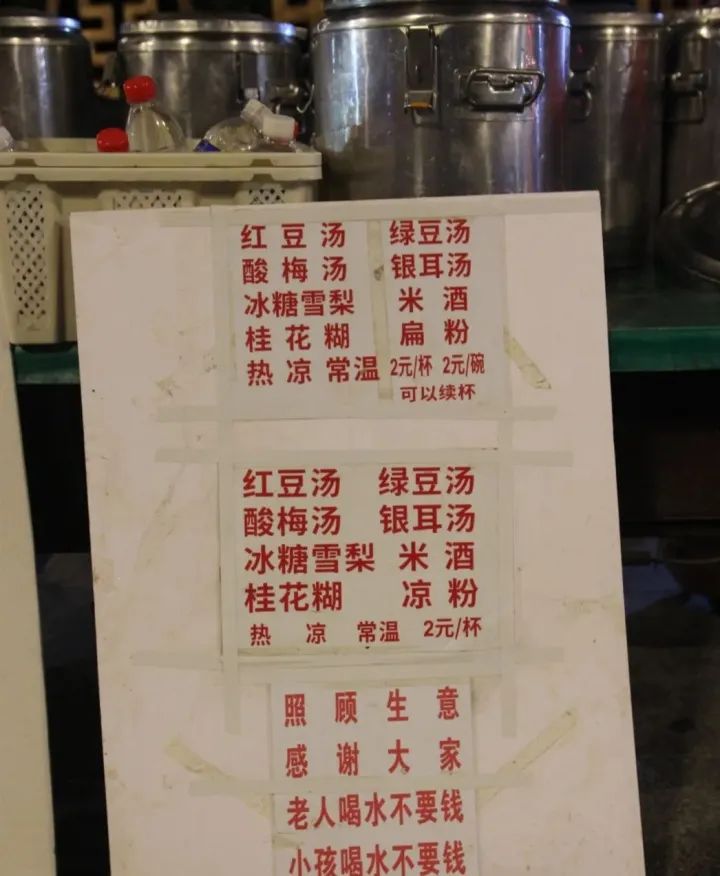 红豆汤 绿豆汤
酸梅汤 银耳汤
冰糖雪梨 米酒
桂花糊 扁粉
热 凉 常温 2元/杯 2元/碗
可以续杯
红豆汤 绿豆汤
酸梅汤 银耳汤
冰糖雪梨 米酒
桂花糊 凉粉
热 凉 常温 2元/杯
照顾生意
感谢大家
老人喝水不要钱
小孩喝水不要钱